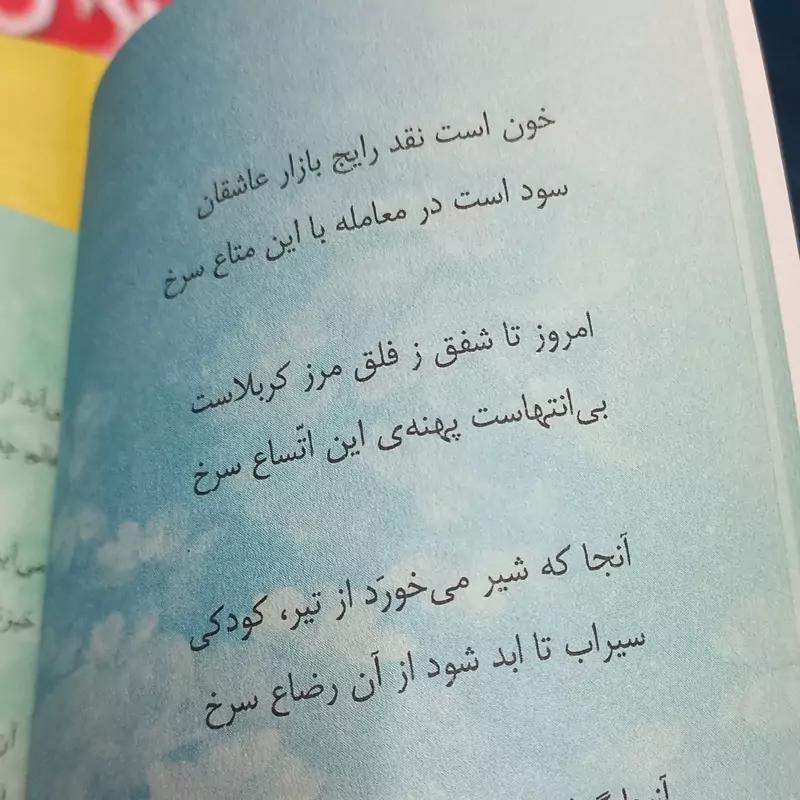 خون است نقد رایج بازار عاشقان
سود است در معامله با این متاع سرخ
امروز تا شفق ز فلق مرز کربلاست
بی‌انتهاست پهنه‌ی این اتّساع سرخ
آنجا که شیر می‌خورَد از تیر، کودکی
سیراب تا ابد شود از آن رضاع سرخ